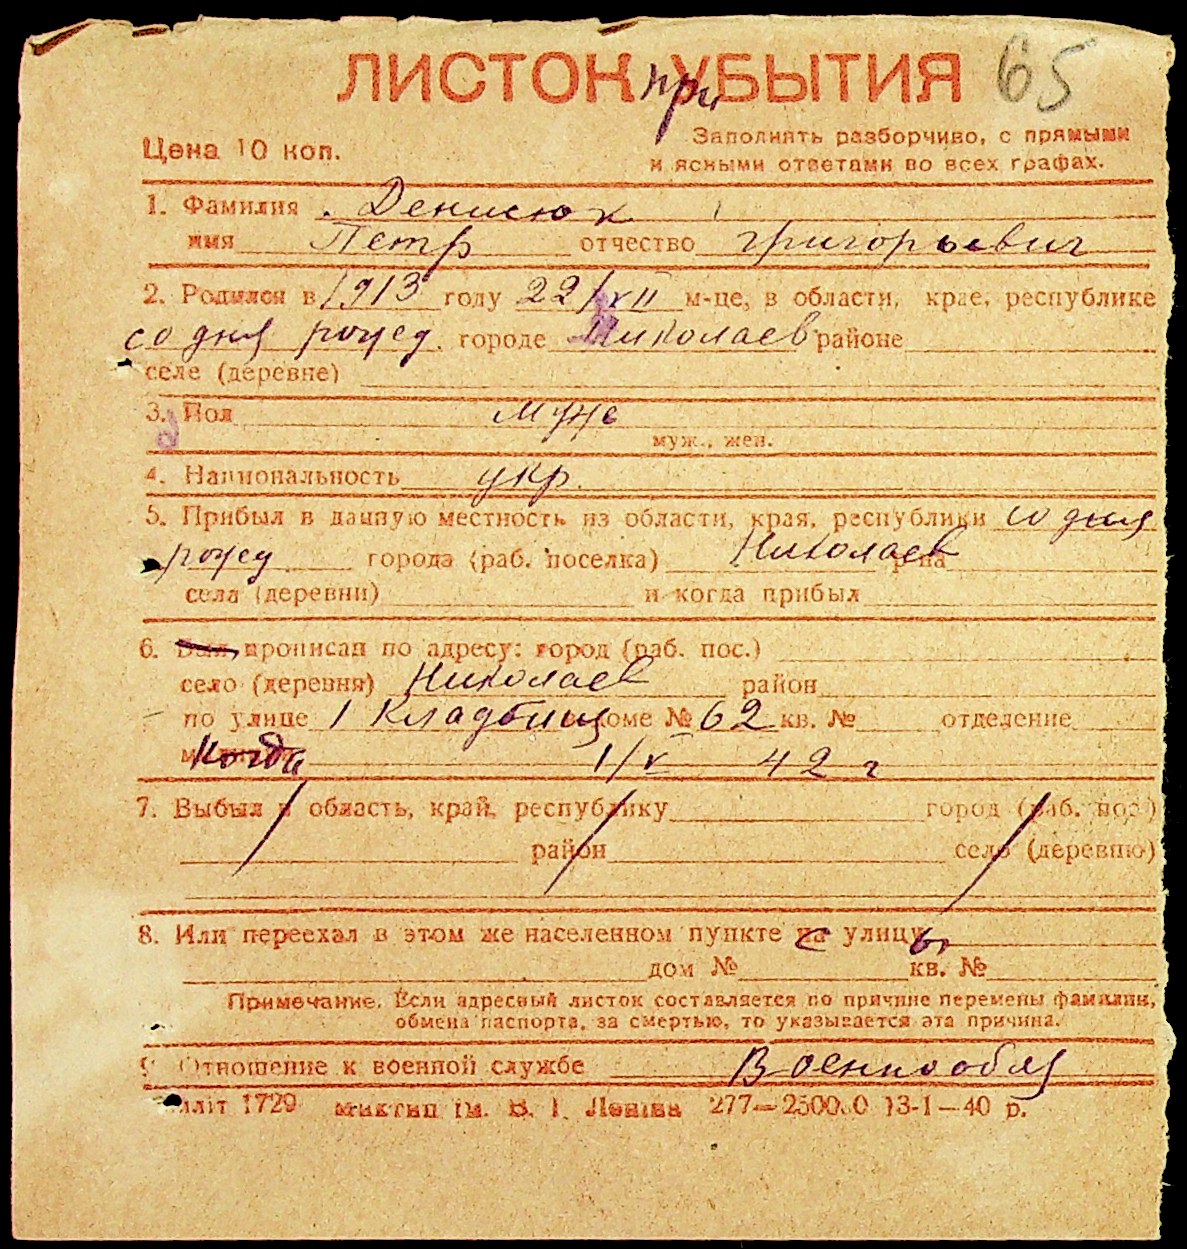 ЛИСТОК при УБЫТИЯ 65
Цена 10 коп. Заполнять разборчиво, с прямыми
и ясными ответами во всех графах.
1. Фамилия Денисюк
имя Петр отчество Григорьевич
2. Родился в 1913 году 22/VII м-це, в области, крае, республике
со дня рожед. городе Николаев районе
селе (деревне)
3. Пол муж
муж., жен.
4. Национальность укр.
5. Прибыл в данную местность из области, края, республики со дня
рожед города (раб. поселка) Николаев р-на
села (деревни) и когда прибыл
6. Был прописан по адресу: город (раб. пос.)
село (деревня) Николаев район
по улице 1 Кладбищ в доме № 62 кв. № отделение
Когда 1/V 42 г
7. Выбыл в область, край, республику город (раб. пос.)
район село (деревню)
8. Или переехал в этом же населенном пункте с улицы
дом № кв. №
Примечание. Если адресный листок составляется по причине перемены фамилии,
обмена паспорта, за смертью, то указывается эта причина.
9. Отношение к военной службе Военнообяз
літ 1729 ім. В. І. Леніна 277—25000.0 13-1—40 р.